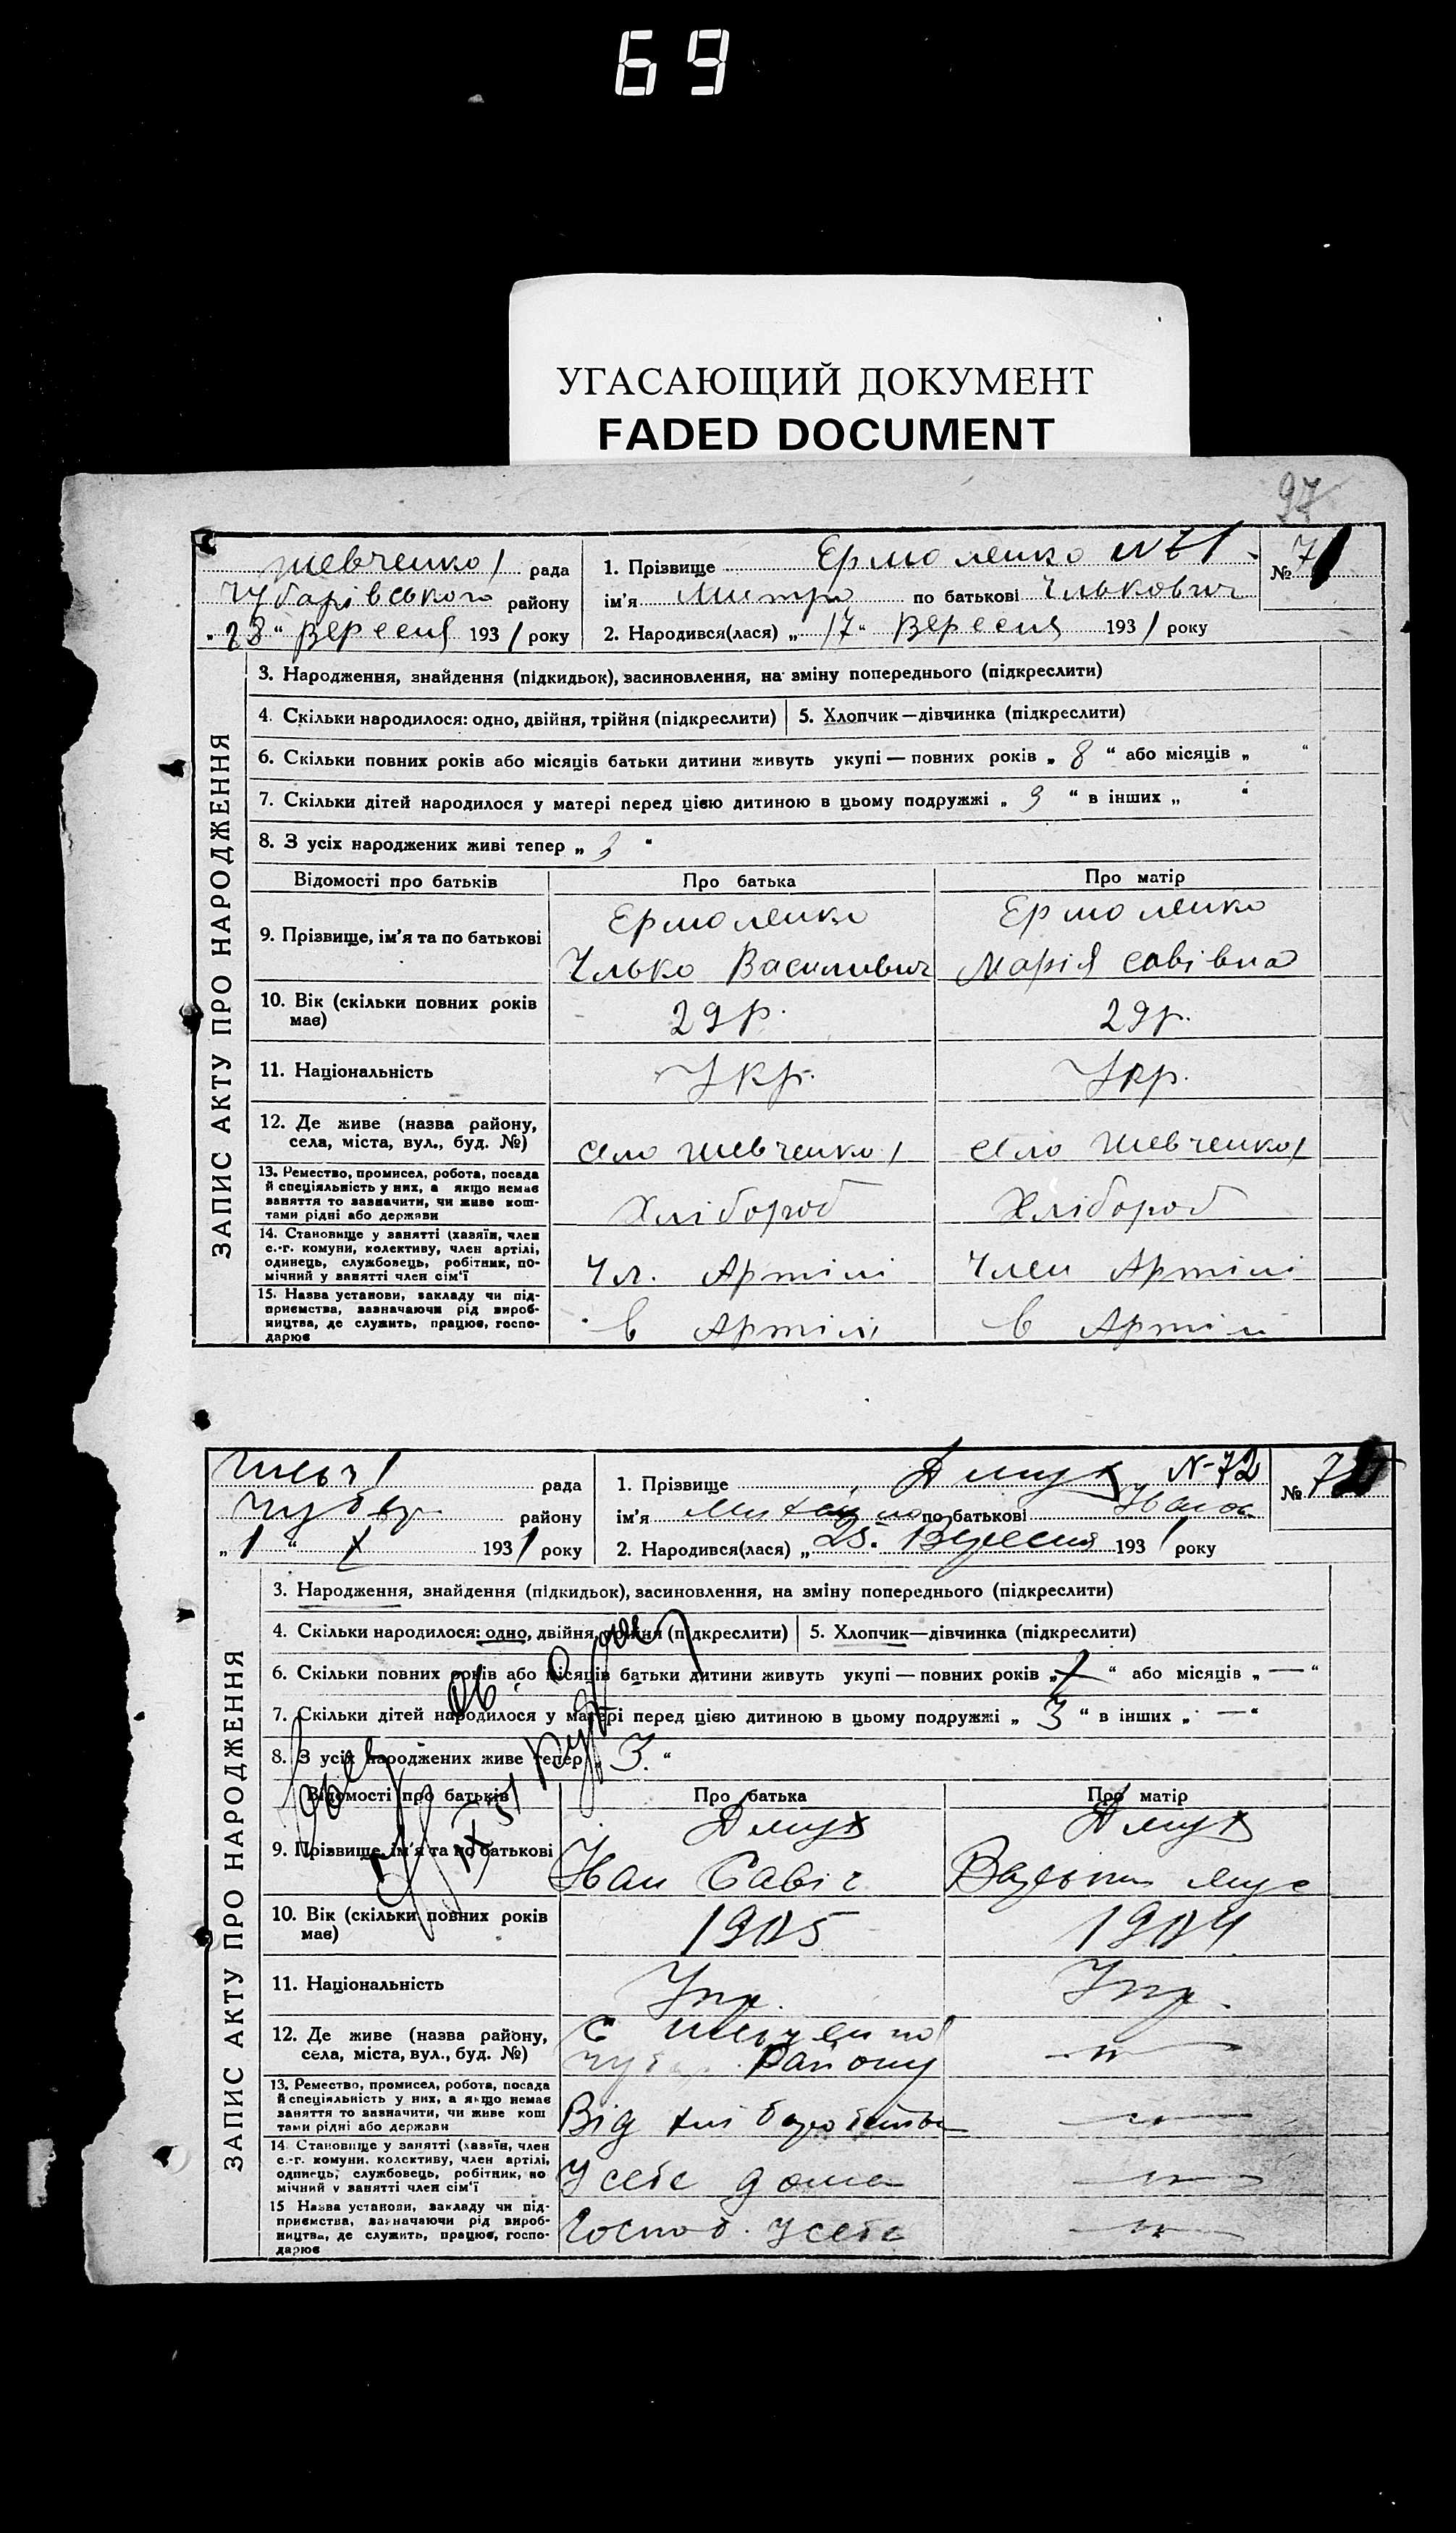 69
УГАСАЮЩИЙ ДОКУМЕНТ
FADED DOCUMENT
97
ЗАПИС АКТУ ПРО НАРОДЖЕННЯ
Шевченко 1 рада
Чубарівського району
„23“ Вересня 1931 року
1. Прізвище Ермоленко N 71
№ 71
ім'я Митро по батькові Илькович
2. Народився(лася) „17“ Вересня 1931 року
3. Народження, знайдення (підкидьок), засиновлення, на зміну попереднього (підкреслити)
4. Скільки народилося: одно, двійня, трійня (підкреслити) 5. Хлопчик—дівчинка (підкреслити)
6. Скільки повних років або місяців батьки дитини живуть укупі — повних років „8“ або місяців „ “
7. Скільки дітей народилося у матері перед цією дитиною в цьому подружжі „3“ в інших „ “
8. З усіх народжених живі тепер „3“
Відомості про батьків Про батька Про матір
9. Прізвище, ім'я та по батькові
Ермоленко
Илько Васильович
Ермоленко
Марія Савівна
10. Вік (скільки повних років має) 29 р. 29 р.
11. Національність Укр. Укр.
12. Де живе (назва району,
села, міста, вул., буд. №)
село Шевченко 1 село Шевченко 1
13. Ремество, промисел, робота, посада
й спеціяльність у них, а якщо немає
заняття то зазначити, чи живе кош-
тами рідні або держави
Хлібороб Хлібороб
14. Становище у занятті (хазяїн, член
с.-г. комуни, колективу, член артілі,
одинець, службовець, робітник, по-
мічний у занятті член сім'ї
Чл. Артілі Член Артілі
15. Назва установи, закладу чи під-
приємства, зазначаючи рід вироб-
ництва, де служить, працює, госпо-
дарює
в Артілі в Артілі
ЗАПИС АКТУ ПРО НАРОДЖЕННЯ
Шевч 1 рада
Чубар району
„1“ X 1931 року
1. Прізвище Дмух N-72
№ 72
ім'я Михайло по батькові Іванов.
2. Народився(лася) „25. Вересня 1931 року
3. Народження, знайдення (підкидьок), засиновлення, на зміну попереднього (підкреслити)
4. Скільки народилося: одно, двійня, трійня (підкреслити) 5. Хлопчик—дівчинка (підкреслити)
6. Скільки повних років або місяців батьки дитини живуть укупі — повних років „ “ або місяців „—“
7. Скільки дітей народилося у матері перед цією дитиною в цьому подружжі „3“ в інших „—“
8. З усіх народжених живе тепер „3.“
Відомості про батьків Про батька Про матір
9. Прізвище, ім'я та по батькові
Дмух
Іван Савіч
Дмух
10. Вік (скільки повних років має) 1905 1904
11. Національність Укр. Укр.
12. Де живе (назва району,
села, міста, вул., буд. №)
С Шевченко 1
Чубар. Району
—"—
13. Ремество, промисел, робота, посада
й спеціяльність у них, а якщо немає
заняття то зазначити, чи живе кош
тами рідні або держави
Від хліборобства —"—
14. Становище у занятті (хазяїн, член
с.-г. комуни, колективу, член артілі,
одинець, службовець, робітник, по
мічний у занятті член сім'ї
У себе дома —"—
15 Назва установи, закладу чи під-
приємства, зазначаючи рід вироб-
ництва, де служить, працює, госпо-
дарює
Господ. У себе —"—